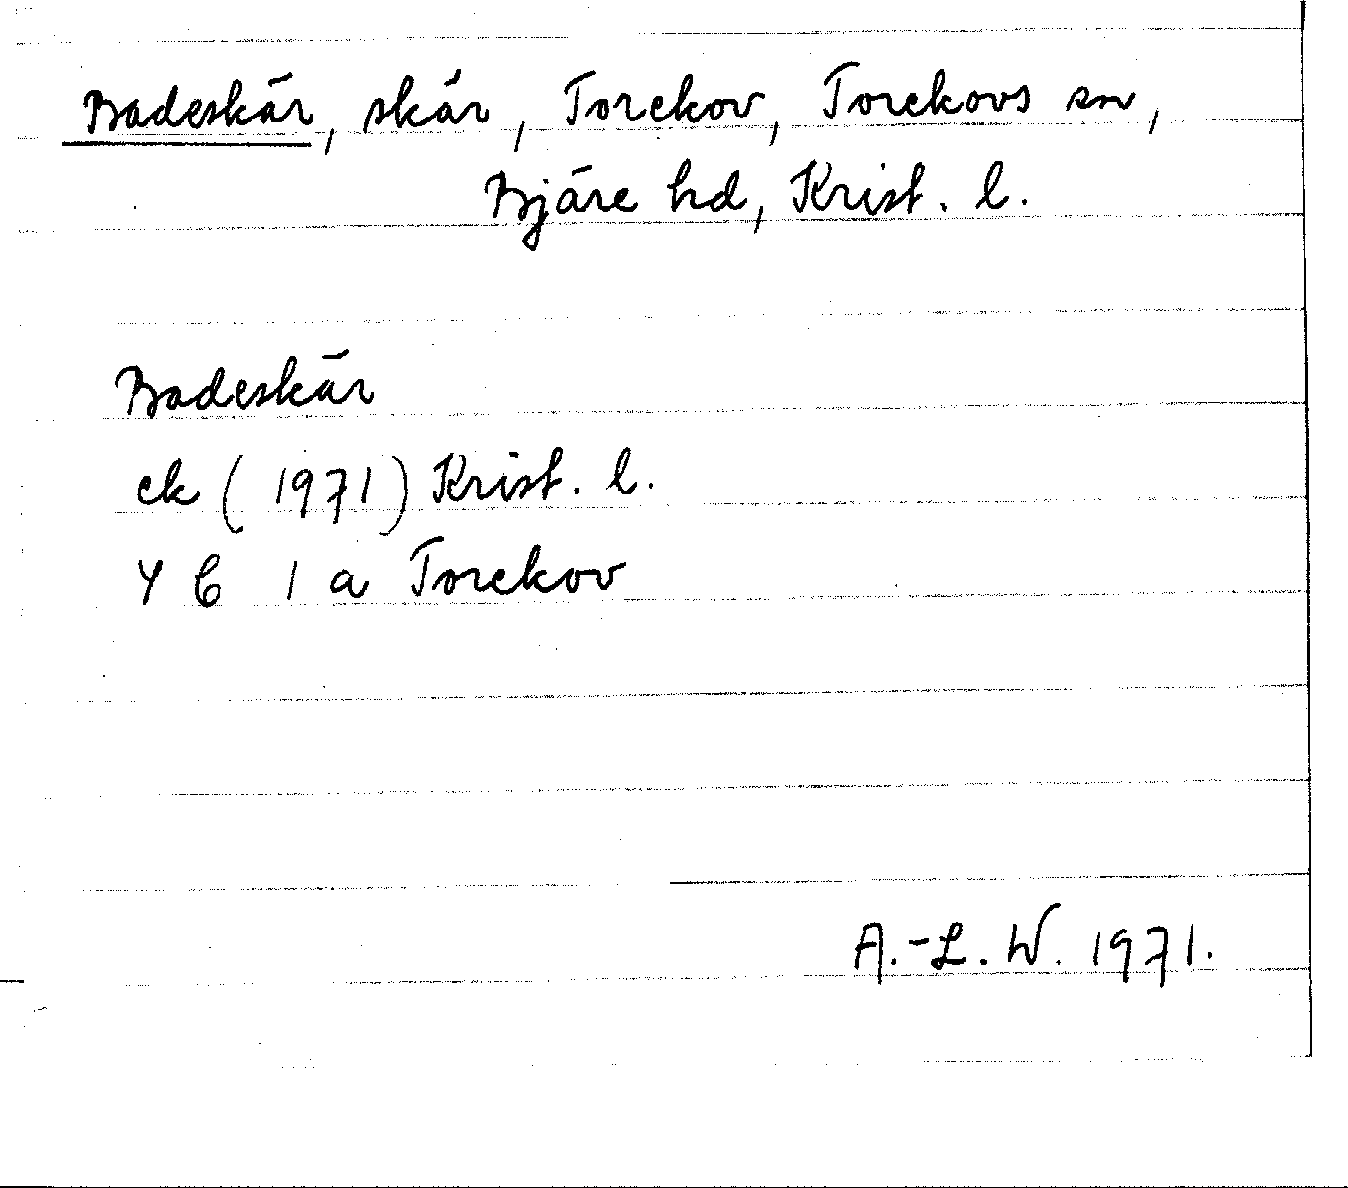 Badeskär, skär, Torekov, Torekovs sn,
Bjäre hd, Krist. l.
Badeskär
ek (1971) Krist. l.
4 C 1 a Torekov
A.-L. W. 1971.